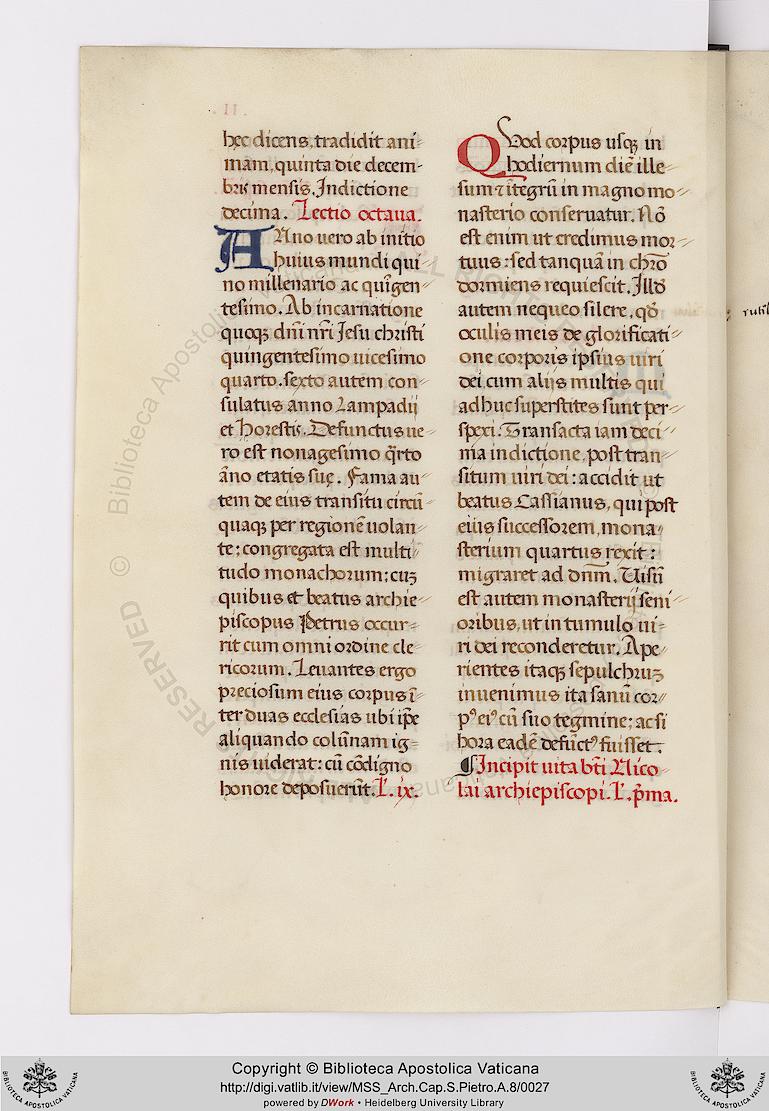 hęc dicens, tradidit ani⸗
mam, quinta die decem⸗
bris mensis. Indictione
decima. Lectio octaua.
ANno uero ab initio
huius mundi qui⸗
no millenario ac quīgen⸗
tesimo. Ab incarnatione
quoqꝫ dn̄i nr̄i Iesu christi
quingentesimo uicesimo
quarto. sexto autem con⸗
sulatus anno Lampadij
et horestis. Defunctus ue⸗
ro est nonagesimo q̄rto
āno etatis suę. Fama au⸗
tem de eius transitu circū⸗
quaqꝫ per regionē uolan⸗
te: congregata est multi⸗
tudo monachorum: cuꝫ
quibus et beatus archie⸗
piscopus Petrus occur⸗
rit cum omni ordine cle⸗
ricorum. Leuantes ergo
preciosum eius corpus ī⸗
ter duas ecclesias ubi ip̄e
aliquando colūnam ig⸗
nis uiderat: cū cōdigno
honore deposuerūt. L'. ix.
QVod corpus usqꝫ in
hodiernum diē ille⸗
sum ⁊ ītegrū in magno mo⸗
nasterio conseruatur. Nō
est enim ut credimus mor⸗
tuus: sed tanquā in chrō
dormiens requiescit. Illd̄
autem nequeo silere, qd̄
oculis meis de glorificati⸗
one corporis ipsius uiri
dei cum alijs multis qui
adhuc superstites sunt per⸗
spexi. Transacta iam deci⸗
ma indictione, post tran⸗
situm uiri dei: accidit ut
beatus Cassianus, qui post
eius successorem, mona⸗
sterium quartus rexit:
migraret ad dn̄m. Uisū
est autem monasterij seni⸗
oribus, ut in tumulo ui⸗
ri dei reconderetur. Ape⸗
rientes itaqꝫ sepulchruꝫ
inuenimus ita sanū cor⸗
pꝰ eiꝰ cū suo tegmine; ac si
hora eadē defūctꝰ fuisset.
¶ Incipit uita bt̄i Nico
lai archiepiscopi. L'. p̄ma.
© Biblioteca Apostolica Vaticana
RESERVED
Copyright © Biblioteca Apostolica Vaticana
http://digi.vatlib.it/view/MSS_Arch.Cap.S.Pietro.A.8/0027
powered by DWork • Heidelberg University Library
BIBLIOTECA APOSTOLICA VATICANA
BIBLIOTECA APOSTOLICA VATICANA